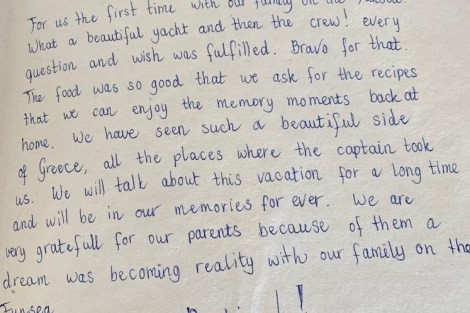 For us the first time with our family on the
What a beautiful yacht and then the crew! every
question and wish was fulfilled. Bravo for that.
The food was so good that we ask for the recipes
that we can enjoy the memory moments back at
home. We have seen such a beautiful side
of Greece, all the places where the captain took
us. We will talk about this vacation for a long time
and will be in our memories for ever. We are
very gratefull for our parents because of them a
dream was becoming reality with our family on the